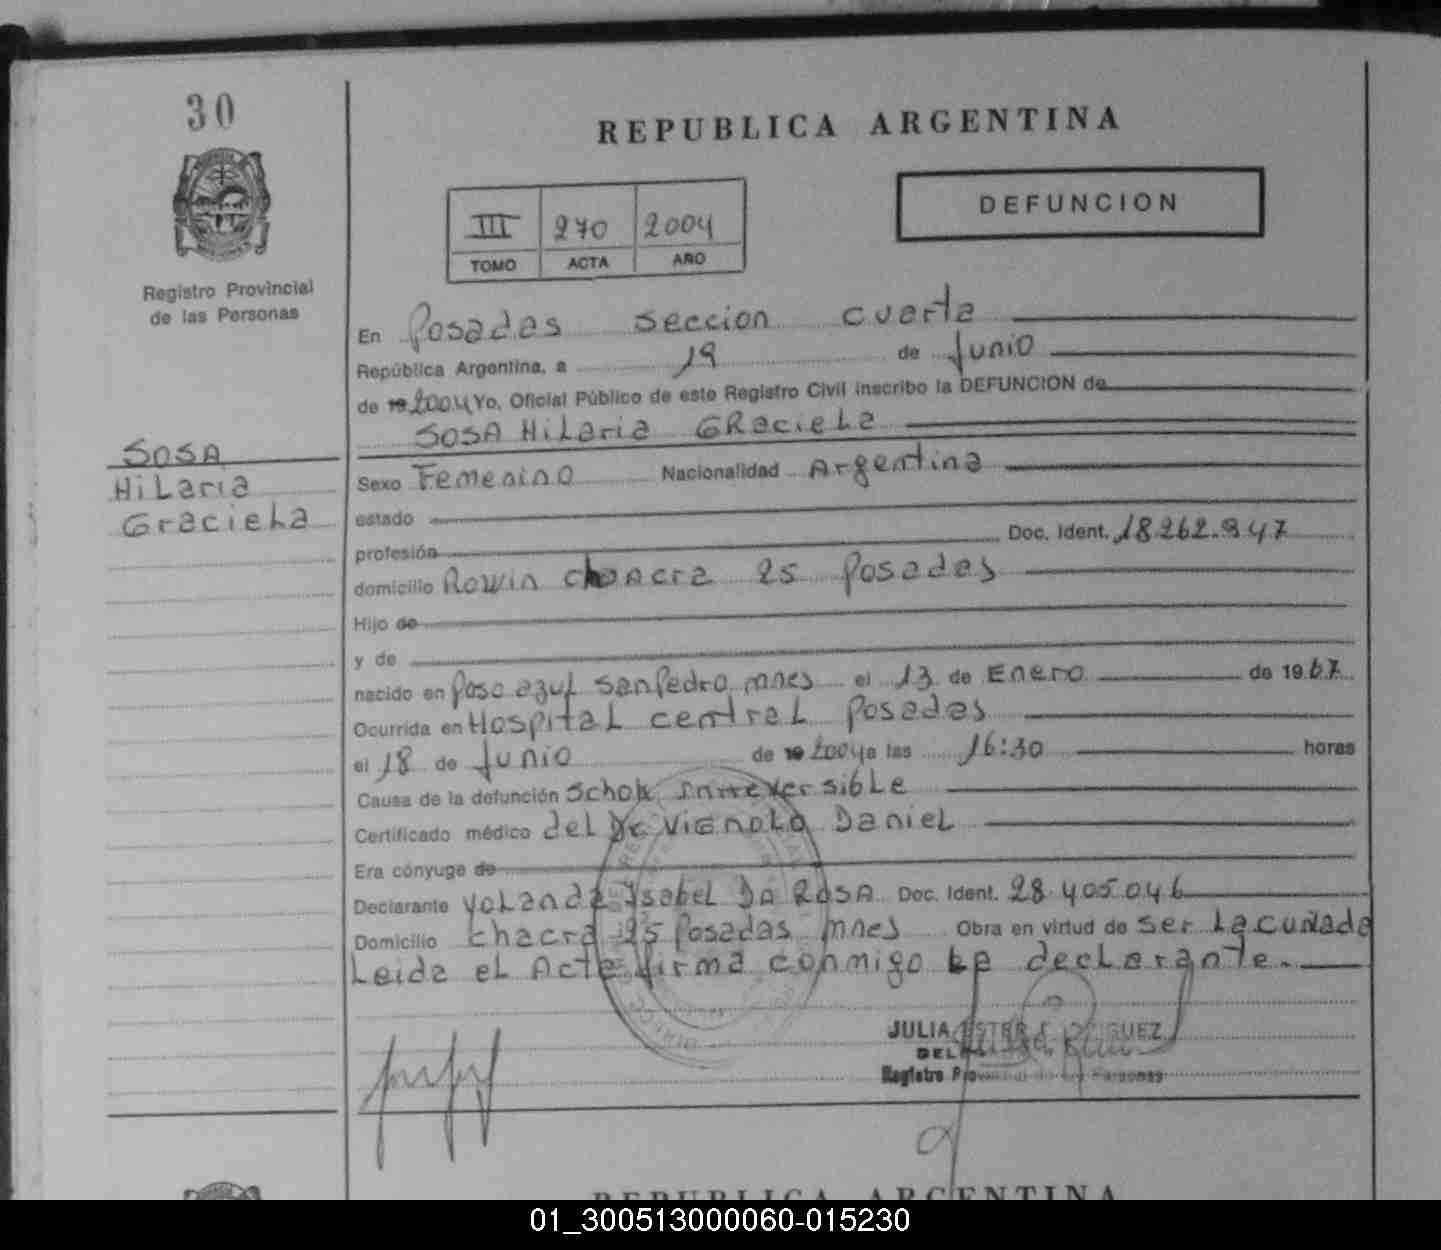 30
REPUBLICA ARGENTINA
DEFUNCION
III 270 2004
TOMO ACTA AÑO
Registro Provincial
de las Personas
En Posadas seccion cuarta
República Argentina, a 19 de Junio
de 19 2004 Yo, Oficial Público de este Registro Civil inscribo la DEFUNCION de
SOSA HiLaria GRacieLa
SOSA
HiLaria
GracieLa
Sexo Femenino Nacionalidad Argentina
estado
profesión Doc. Ident. 18262.947
domicilio Rowin chacra 25 Posadas
Hijo de
y de
nacido en Poso azul San Pedro mnes el 13 de Enero de 1967
Ocurrida en HospitaL centraL Posadas
el 18 de Junio de 19 2004 a las 16:30 horas
Causa de la defunción Schok Irreversible
Certificado médico deL Dr VignoLo DanieL
Era cónyuge de
Declarante YoLanda YsabeL Da RosA Doc. Ident. 28.405.046
Domicilio chacra 25 Posadas mnes Obra en virtud de ser La cuñada
Leida eL Acta firma conmigo La declarante.
JULIA
DEL
Registro Provincial de las Personas
REPUBLICA ARGENTINA
01_300513000060-015230